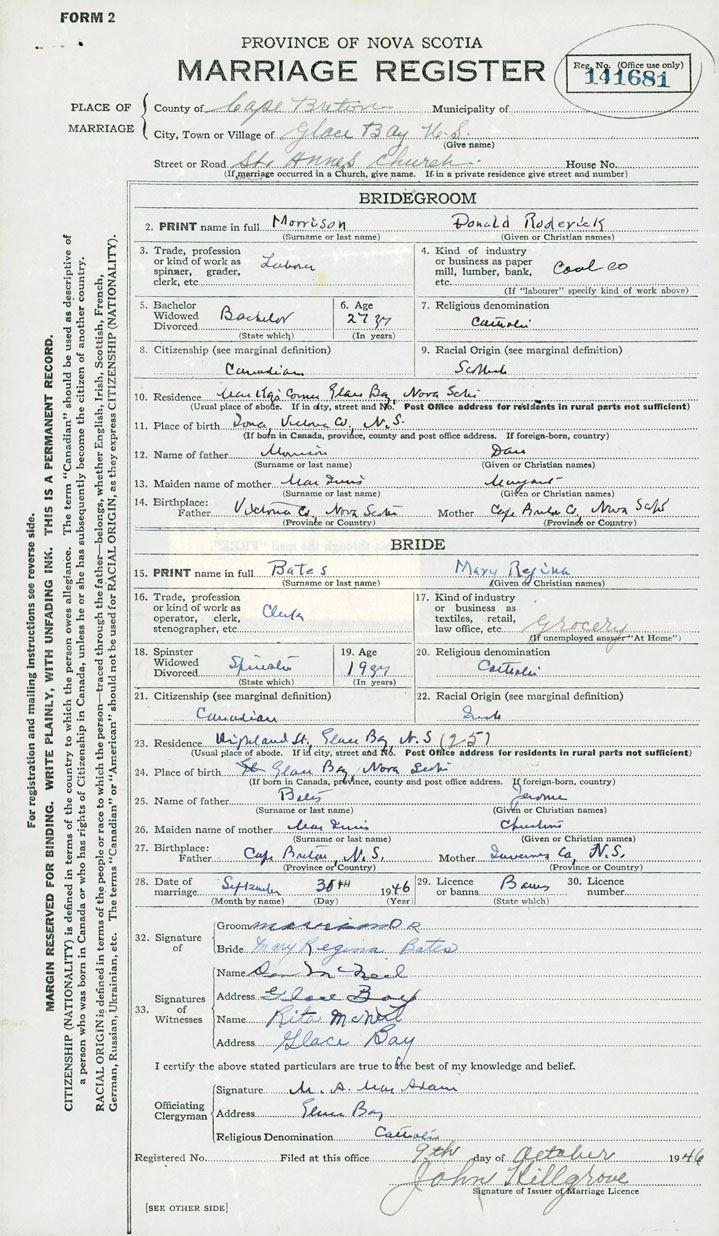 FORM 2
PROVINCE OF NOVA SCOTIA
MARRIAGE REGISTER
Reg. No. (Office use only)
141681
PLACE OF MARRIAGE
County of Cape Breton Municipality of
City, Town or Village of Glace Bay N.S.
(Give name)
Street or Road St. Anne's Church. House No.
(If marriage occurred in a Church, give name. If in a private residence give street and number)
BRIDEGROOM
2. PRINT name in full Morrison Donald Roderick
(Surname or last name) (Given or Christian names)
3. Trade, profession or kind of work as spinner, grader, clerk, etc. Labour
4. Kind of industry or business as paper mill, lumber, bank, etc. Coal Co
(If "labourer" specify kind of work above)
5. Bachelor Widowed Divorced Bachelor
(State which)
6. Age 27 yr
(In years)
7. Religious denomination
Catholic
8. Citizenship (see marginal definition)
Canadian
9. Racial Origin (see marginal definition)
Scottish
10. Residence Corner Glace Bay, Nova Scotia
(Usual place of abode. If in city, street and No. Post Office address for residents in rural parts not sufficient)
11. Place of birth Iona, Victoria Co, N.S.
(If born in Canada, province, county and post office address. If foreign-born, country)
12. Name of father Morrison Dan
(Surname or last name) (Given or Christian names)
13. Maiden name of mother Mac Innis Margaret
(Surname or last name) (Given or Christian names)
14. Birthplace: Father Victoria Co, Nova Scotia Mother Cape Breton Co, Nova Scotia
(Province or Country) (Province or Country)
BRIDE
15. PRINT name in full Bates Mary Regina
(Surname or last name) (Given or Christian names)
16. Trade, profession or kind of work as operator, clerk, stenographer, etc. Clerk
17. Kind of industry or business as textiles, retail, law office, etc. Grocery
(If unemployed answer "At Home")
18. Spinster Widowed Divorced Spinster
(State which)
19. Age 19 yr
(In years)
20. Religious denomination
Catholic
21. Citizenship (see marginal definition)
Canadian
22. Racial Origin (see marginal definition)
Irish
23. Residence Highland St, Glace Bay, N.S (25)
(Usual place of abode. If in city, street and No. Post Office address for residents in rural parts not sufficient)
24. Place of birth Glace Bay, Nova Scotia
(If born in Canada, province, county and post office address. If foreign-born, country)
25. Name of father Bates Jerome
(Surname or last name) (Given or Christian names)
26. Maiden name of mother Mac Innis Christine
(Surname or last name) (Given or Christian names)
27. Birthplace: Father Cape Breton, N.S. Mother Inverness Co, N.S.
(Province or Country) (Province or Country)
28. Date of marriage September 30th 1946
(Month by name) (Day) (Year)
29. Licence or banns Banns
(State which)
30. Licence number
32. Signature of
Groom Morrison D R
Bride Mary Regina Bates
33. Signatures of Witnesses
Name Dan McNeil
Address Glace Bay
Name Rita McNeil
Address Glace Bay
I certify the above stated particulars are true to the best of my knowledge and belief.
Officiating Clergyman
Signature M. A. Mac Adam
Address Glace Bay
Religious Denomination Catholic
Registered No. Filed at this office 9th day of October 1946
John Killgrove
Signature of Issuer of Marriage Licence
[SEE OTHER SIDE]
For registration and mailing instructions see reverse side.
MARGIN RESERVED FOR BINDING. WRITE PLAINLY, WITH UNFADING INK. THIS IS A PERMANENT RECORD.
CITIZENSHIP (NATIONALITY) is defined in terms of the country to which the person owes allegiance. The term "Canadian" should be used as descriptive of
a person who was born in Canada or who has rights of Citizenship in Canada, unless he or she has subsequently become the citizen of another country.
RACIAL ORIGIN is defined in terms of the people or race to which the person—traced through the father—belongs, whether English, Irish, Scottish, French,
German, Russian, Ukrainian, etc. The terms "Canadian" or "American" should not be used for RACIAL ORIGIN, as they express CITIZENSHIP (NATIONALITY).